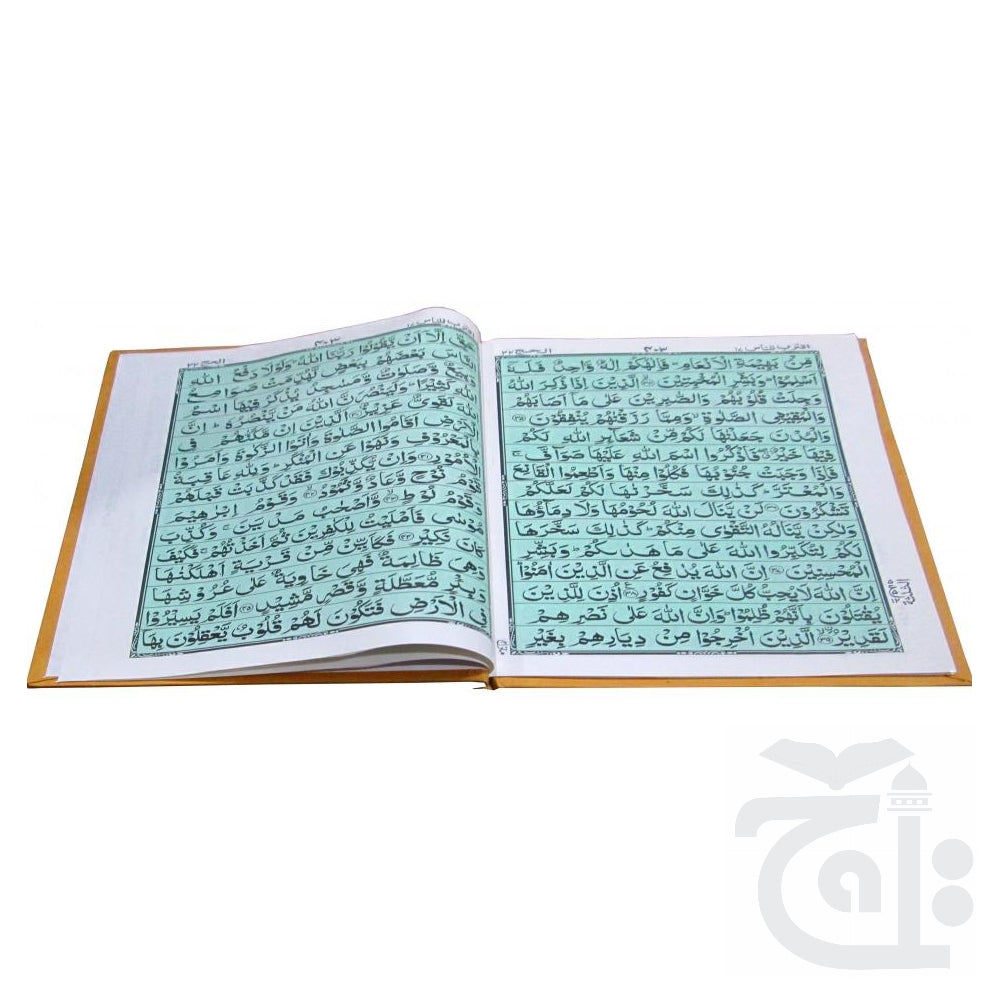 اقترب للناس ١٧
٣٠٣
الحج ٢٢
مِّنْ بَهِيْمَةِ الْاَنْعَامِ ؕ فَاِلٰهُكُمْ اِلٰهٌ وَّاحِدٌ فَلَهٗۤ
اَسْلِمُوْا ؕ وَبَشِّرِ الْمُخْبِتِيْنَ ۙ﴿۳۴﴾ الَّذِيْنَ اِذَا ذُكِرَ اللّٰهُ
وَجِلَتْ قُلُوْبُهُمْ وَالصّٰبِرِيْنَ عَلٰى مَاۤ اَصَابَهُمْ
وَالْمُقِيْمِى الصَّلٰوةِ ۙ وَمِمَّا رَزَقْنٰهُمْ يُنْفِقُوْنَ ﴿۳۵﴾
وَالْبُدْنَ جَعَلْنٰهَا لَكُمْ مِّنْ شَعَآئِرِ اللّٰهِ لَكُمْ
فِيْهَا خَيْرٌ ۖ فَاذْكُرُوا اسْمَ اللّٰهِ عَلَيْهَا صَوَآفَّ ۚ
فَاِذَا وَجَبَتْ جُنُوْبُهَا فَكُلُوْا مِنْهَا وَاَطْعِمُوا الْقَانِعَ
وَالْمُعْتَرَّ ؕ كَذٰلِكَ سَخَّرْنٰهَا لَكُمْ لَعَلَّكُمْ
تَشْكُرُوْنَ ﴿۳۶﴾ لَنْ يَّنَالَ اللّٰهَ لُحُوْمُهَا وَلَا دِمَآؤُهَا
وَلٰكِنْ يَّنَالُهُ التَّقْوٰى مِنْكُمْ ؕ كَذٰلِكَ سَخَّرَهَا
لَكُمْ لِتُكَبِّرُوا اللّٰهَ عَلٰى مَا هَدٰىكُمْ ؕ وَبَشِّرِ
الْمُحْسِنِيْنَ ﴿۳۷﴾ اِنَّ اللّٰهَ يُدٰفِعُ عَنِ الَّذِيْنَ اٰمَنُوْا ؕ
اِنَّ اللّٰهَ لَا يُحِبُّ كُلَّ خَوَّانٍ كَفُوْرٍ ﴿۳۸﴾ اُذِنَ لِلَّذِيْنَ
يُقٰتَلُوْنَ بِاَنَّهُمْ ظُلِمُوْا ؕ وَاِنَّ اللّٰهَ عَلٰى نَصْرِهِمْ
لَقَدِيْرُ ۙ﴿۳۹﴾ الَّذِيْنَ اُخْرِجُوْا مِنْ دِيَارِهِمْ بِغَيْرِ
الحج ٢٢
اِلَّاۤ اَنْ يَّقُوْلُوْا رَبُّنَا اللّٰهُ ؕ وَلَوْلَا دَفْعُ اللّٰهِ
بَعْضَهُمْ بِبَعْضٍ لَّهُدِّمَتْ صَوَامِعُ
وَبِيَعٌ وَّصَلَوٰتٌ وَّمَسٰجِدُ يُذْكَرُ فِيْهَا اسْمُ
اللّٰهِ كَثِيْرًا ؕ وَلَيَنْصُرَنَّ اللّٰهُ مَنْ يَّنْصُرُهٗ ؕ اِنَّ
اللّٰهَ لَقَوِىٌّ عَزِيْزٌ ﴿۴۰﴾ اَلَّذِيْنَ اِنْ مَّكَّنّٰهُمْ فِى
الْاَرْضِ اَقَامُوا الصَّلٰوةَ وَاٰتَوُا الزَّكٰوةَ وَاَمَرُوْا
بِالْمَعْرُوْفِ وَنَهَوْا عَنِ الْمُنْكَرِ ؕ وَلِلّٰهِ عَاقِبَةُ
الْاُمُوْرِ ﴿۴۱﴾ وَاِنْ يُّكَذِّبُوْكَ فَقَدْ كَذَّبَتْ قَبْلَهُمْ
قَوْمُ نُوْحٍ وَّعَادٌ وَّثَمُوْدُ ۙ﴿۴۲﴾ وَقَوْمُ اِبْرٰهِيْمَ
وَقَوْمُ لُوْطٍ ۙ﴿۴۳﴾ وَّاَصْحٰبُ مَدْيَنَ ۚ وَكُذِّبَ
مُوْسٰى فَاَمْلَيْتُ لِلْكٰفِرِيْنَ ثُمَّ اَخَذْتُهُمْ ۚ فَكَيْفَ
كَانَ نَكِيْرِ ﴿۴۴﴾ فَكَاَيِّنْ مِّنْ قَرْيَةٍ اَهْلَكْنٰهَا
وَهِىَ ظَالِمَةٌ فَهِىَ خَاوِيَةٌ عَلٰى عُرُوْشِهَا
وَبِئْرٍ مُّعَطَّلَةٍ وَّقَصْرٍ مَّشِيْدٍ ﴿۴۵﴾ اَفَلَمْ يَسِيْرُوْا
فِى الْاَرْضِ فَتَكُوْنَ لَهُمْ قُلُوْبٌ يَّعْقِلُوْنَ بِهَاۤ